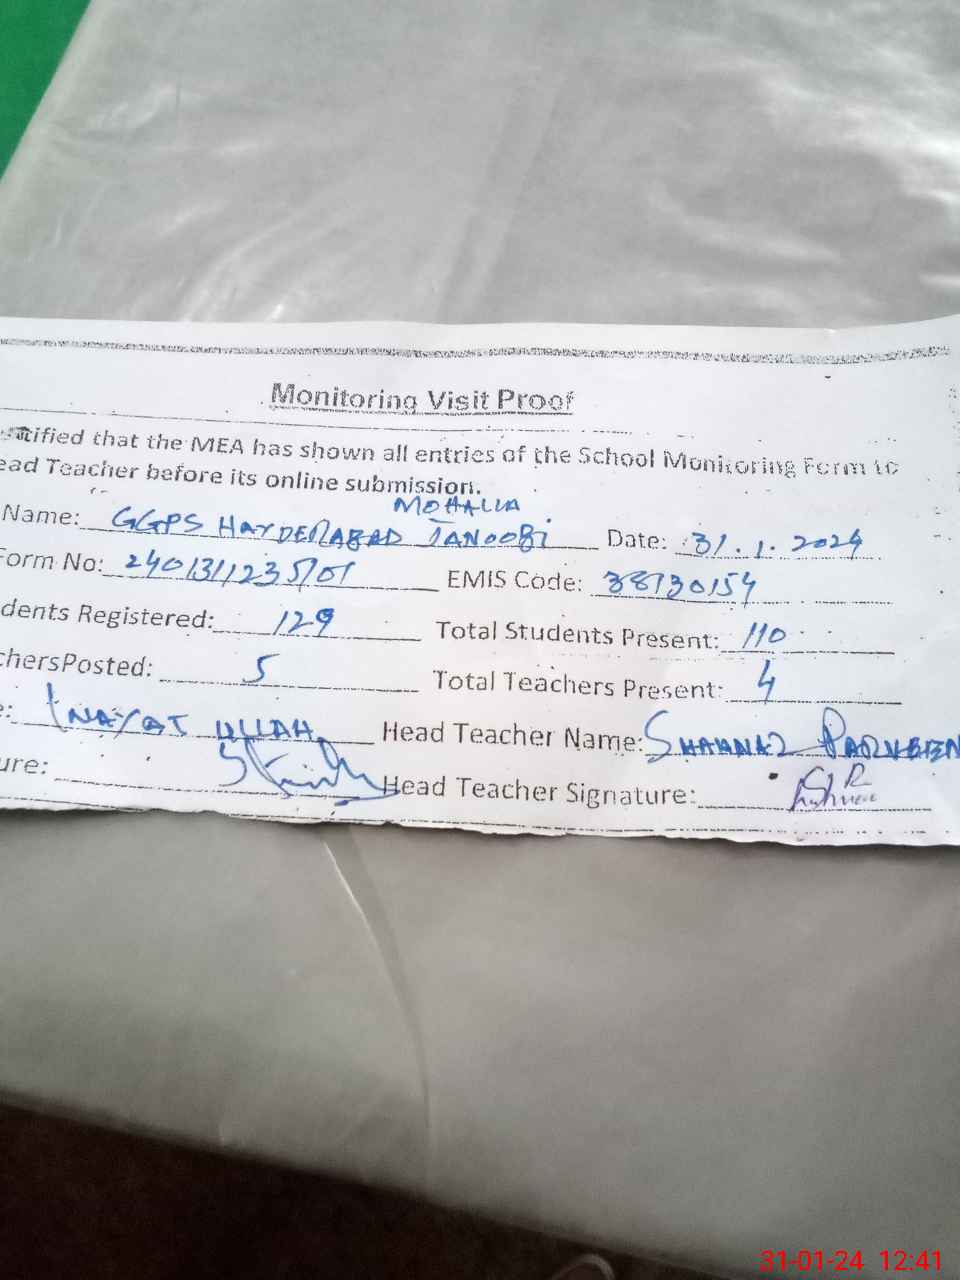 Monitoring Visit Proof
tified that the MEA has shown all entries of the School Monitoring Form to
ead Teacher before its online submission.
MOHALLA
Name: GGPS HAYDERABAD JANOOBI Date: 31.1.2024
Form No: 2401311235101 EMIS Code: 38730154
dents Registered: 129 Total Students Present: 110
chersPosted: 5 Total Teachers Present: 4
e: INAYAT ULLAH Head Teacher Name: SHAHNAZ PARVEEN
ure: Head Teacher Signature:
31-01-24 12:41